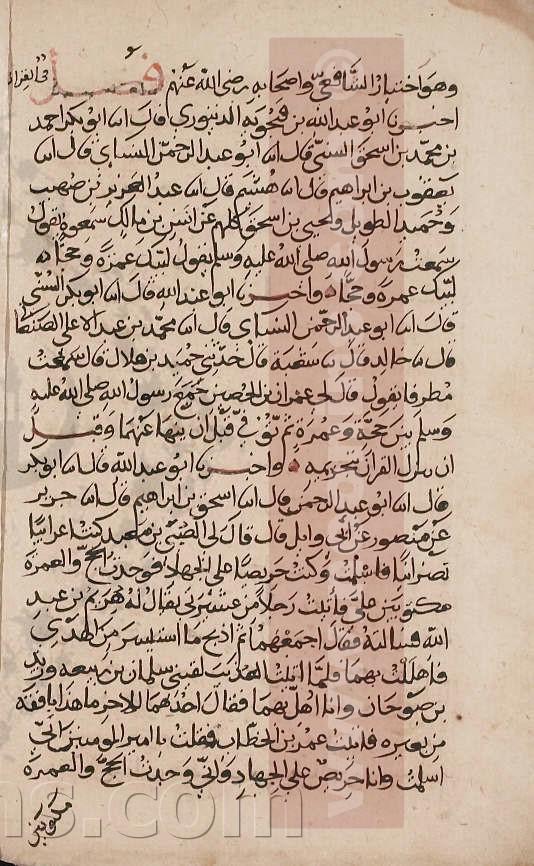 وهو اختيار الشافعي واصحابه رضي الله عنهم فصل في القران
اخبرنا ابو عبد الله بن فنجويه الدينوري قال انا ابو بكر احمد
بن محمد بن اسحق السني قال انا ابو عبد الرحمن النساي قال انا
يعقوب بن ابراهيم قال انا هشيم قال انا عبد العزيز بن صهيب
وحميد الطويل ويحيي بن اسحق كلهم عن انس بن مالك سمعوه يقول
سمعت رسول الله صلي الله عليه وسلم يقول لبيك عمرة وحجا
لبيك عمرة وحجا واخبرنا ابو عبد الله قال انا ابو بكر السني
قال انا ابو عبد الرحمن النساي قال انا محمد بن عبد الاعلي الصنعاني
قال نا خالد قال نا شعبة قال حدثني حميد بن هلال قال سمعت
مطرفا يقول قال لي عمران بن الحصين جمع رسول الله صلي الله عليه
وسلم بين حجة وعمرة ثم توفي قبل ان ينها عنها وقبل
ان ينزل القران بتحريمه واخبرنا ابو عبد الله قال انا ابو بكر
قال انا ابو عبد الرحمن قال انا اسحق بن ابراهيم قال انا جرير
عن منصور عن ابي وايل قال قال لي الصبي بن معبد كنت اعرابيا
نصرانيا فاسلمت وكنت حريصا علي الجهاد فوجدت الحج والعمرة
مكتوبين علي فاتيت رجلا من عشيرتي يقال له هريم بن عبد
الله فسالته فقال اجمعهما ثم اذبح ما استيسر من الهدي
فاهللت بهما فلما اتيت العذيب لقيني سلمان بن ربيعه وزيد
بن صوحان وانا اهل بهما فقال احدهما للاخر ما هذا بافقه
من بعيره فاتيت عمر بن الخطاب فقلت يا امير المومنين اني
اسلمت وانا حريص علي الجهاد واني وجدت الحج والعمرة
مكتوبين